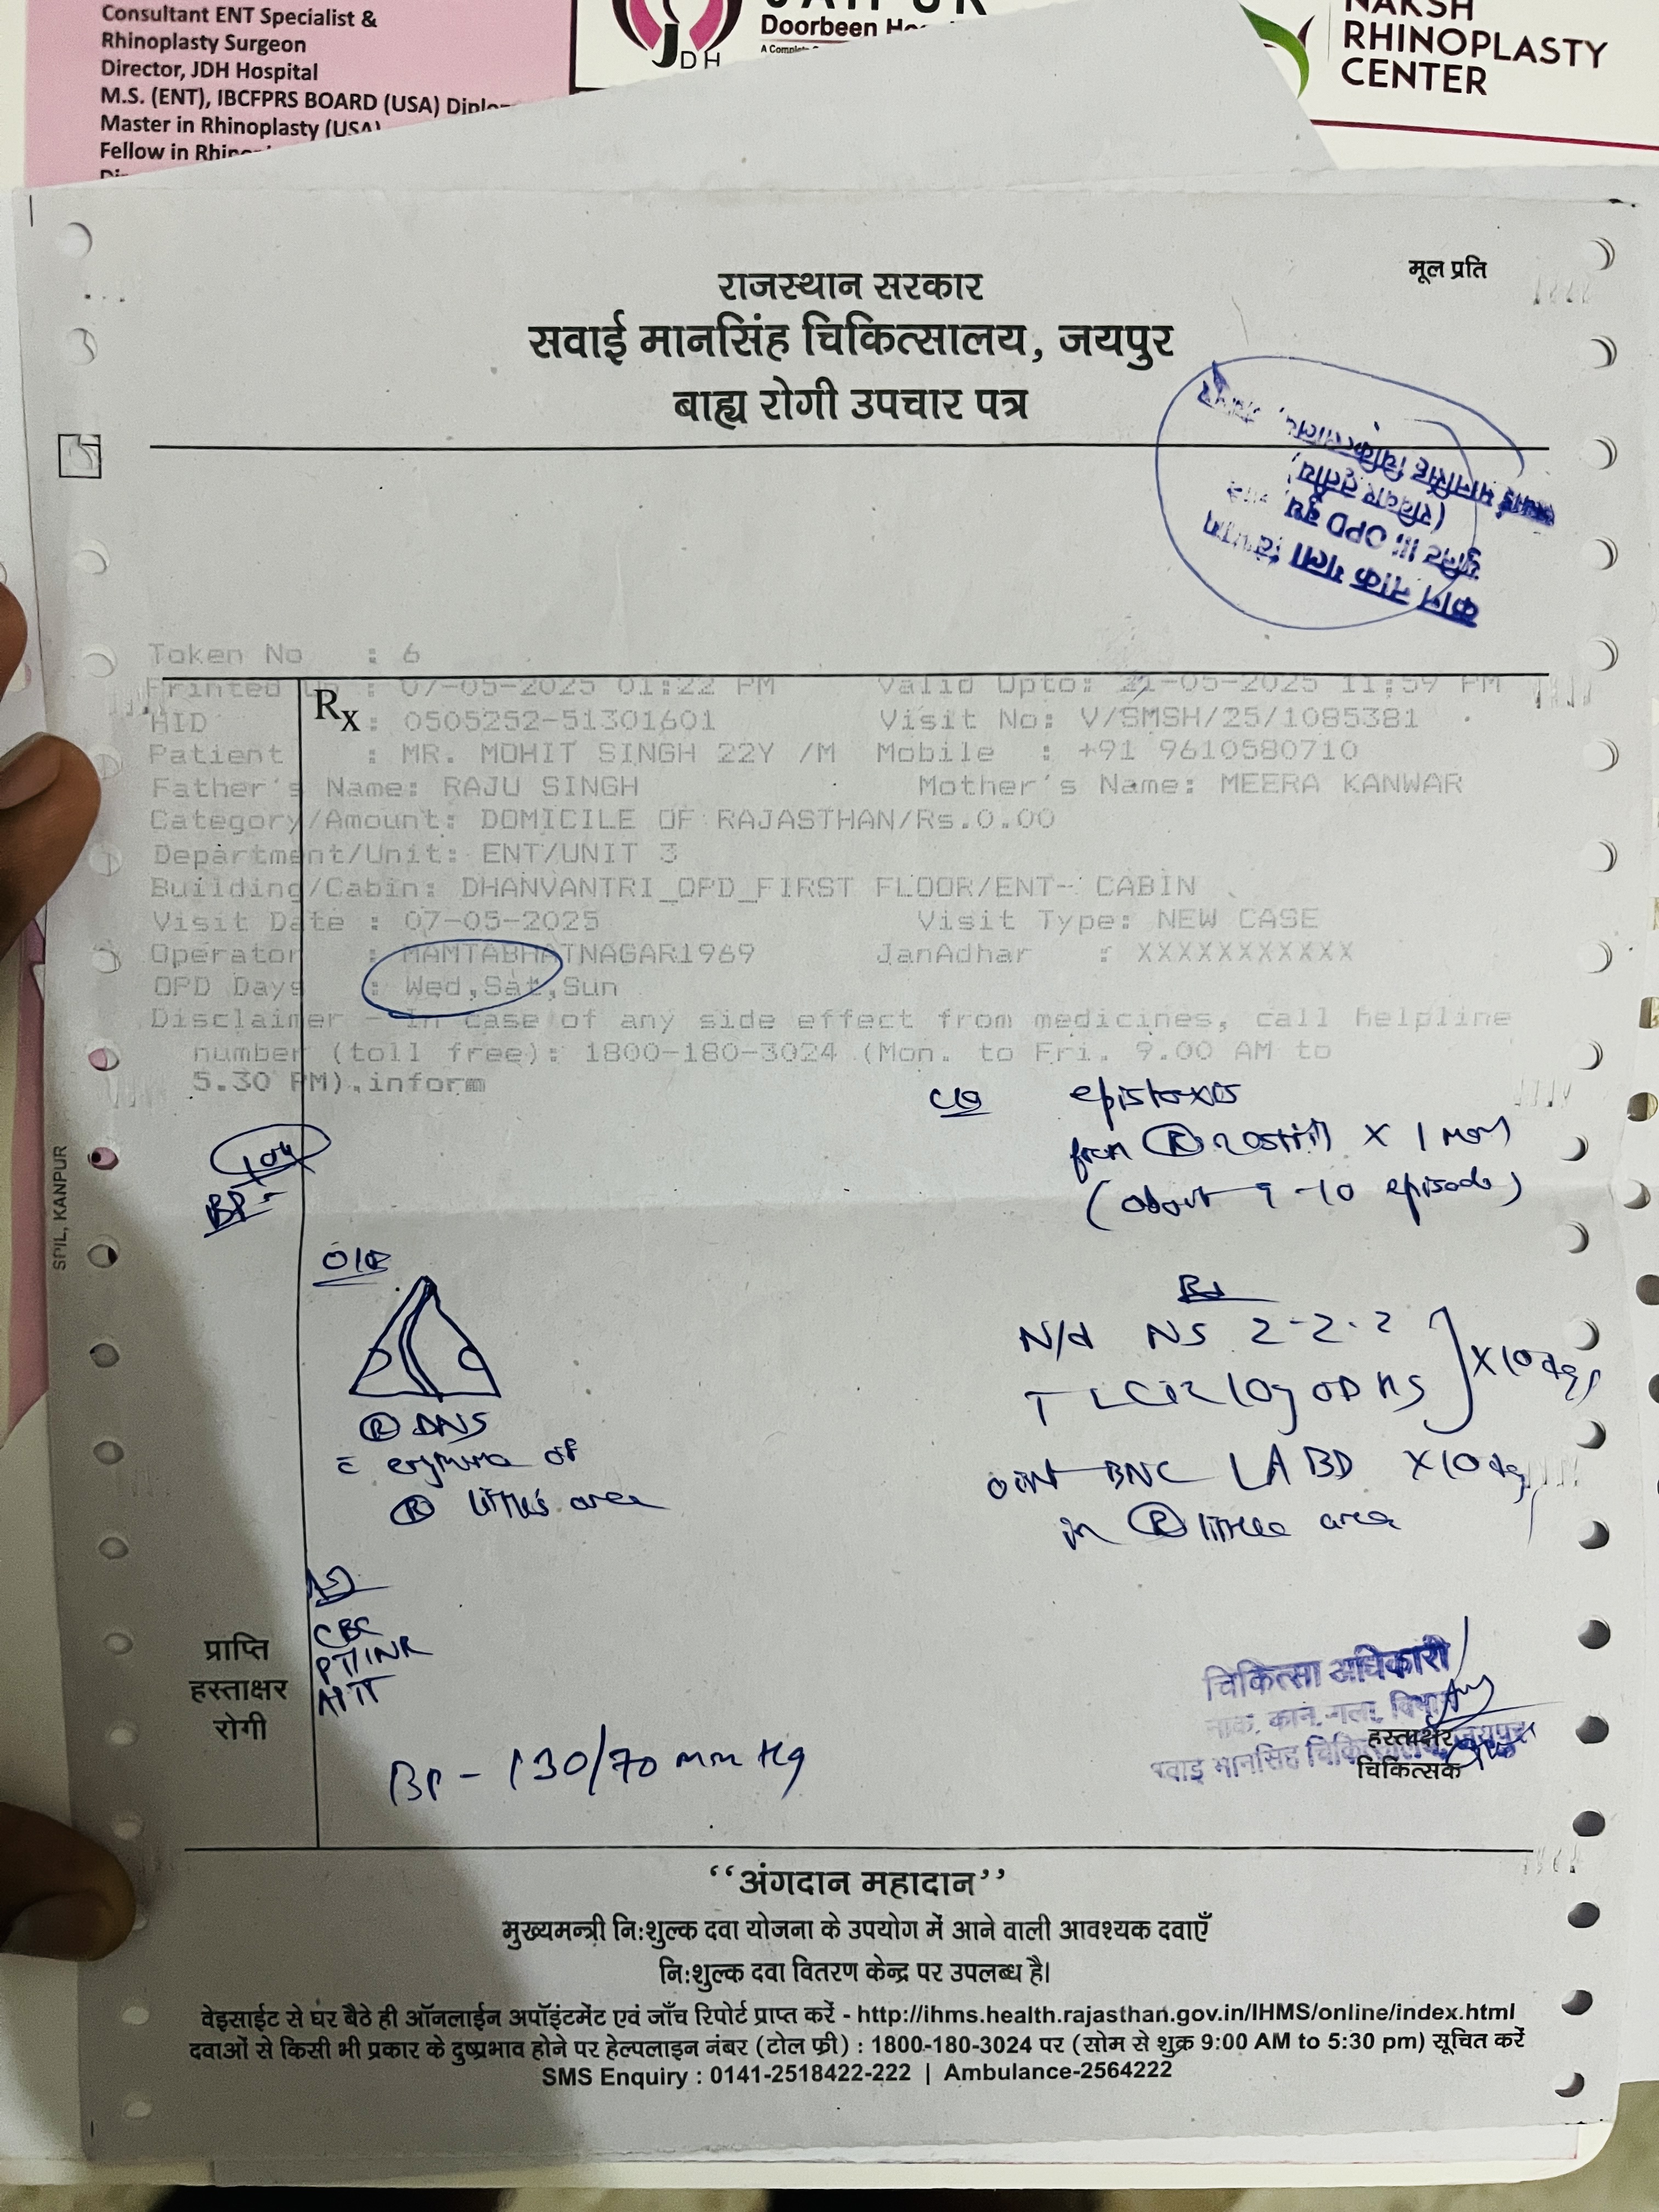 Consultant ENT Specialist &
Rhinoplasty Surgeon
Director, JDH Hospital
M.S. (ENT), IBCFPRS BOARD (USA)
Master in Rhinoplasty (USA)
Fellow in
JDH
Doorbeen
NAKSH
RHINOPLASTY
CENTER
मूल प्रति
राजस्थान सरकार
सवाई मानसिंह चिकित्सालय, जयपुर
बाह्य रोगी उपचार पत्र
कान नाक गला
युनिट III OPD बुध
(रविवार तृतीय)
मानसिंह
Token No : 6
Printed On : 07-05-2025 01:22 PM Valid Upto: 21-05-2025 11:59 PM
Rx
HID : 0505252-51301601 Visit No: V/SMSH/25/1085381
Patient : MR. MOHIT SINGH 22Y /M Mobile : +91 9610580710
Father's Name: RAJU SINGH Mother's Name: MEERA KANWAR
Category/Amount: DOMICILE OF RAJASTHAN/Rs.0.00
Department/Unit: ENT/UNIT 3
Building/Cabin: DHANVANTRI_OPD_FIRST FLOOR/ENT- CABIN
Visit Date : 07-05-2025 Visit Type: NEW CASE
Operator : MAMTABHATNAGAR1969 JanAdhar : XXXXXXXXXXX
OPD Days : Wed,Sat,Sun
Disclaimer - In case of any side effect from medicines, call helpline
number (toll free): 1800-180-3024 (Mon. to Fri. 9.00 AM to
5.30 PM).inform
epistaxis
from R nostril x 1
(about 9-10 episode)
BP-
O/E
R DNS
of
R little's area
N/d NS 2-2-2
T LCZ 10g OD HS x 10 days
oint BNC LA BD x 10
in R little area
CBC
PT/INR
BP - 130/70 mm Hg
प्राप्ति
हस्ताक्षर
रोगी
चिकित्सा अधिकारी
नाक, कान, गला, विभाग
सवाई मानसिंह चिकित्सालय, जयपुर
हस्ताक्षर
चिकित्सक
SPIL, KANPUR
‘‘अंगदान महादान’’
मुख्यमन्त्री नि:शुल्क दवा योजना के उपयोग में आने वाली आवश्यक दवाएँ
नि:शुल्क दवा वितरण केन्द्र पर उपलब्ध है।
वेइसाईट से घर बैठे ही ऑनलाईन अपॉइंटमेंट एवं जाँच रिपोर्ट प्राप्त करें - http://ihms.health.rajasthan.gov.in/IHMS/online/index.html
दवाओं से किसी भी प्रकार के दुष्प्रभाव होने पर हेल्पलाइन नंबर (टोल फ्री) : 1800-180-3024 पर (सोम से शुक्र 9:00 AM to 5:30 pm) सूचित करें
SMS Enquiry : 0141-2518422-222 | Ambulance-2564222